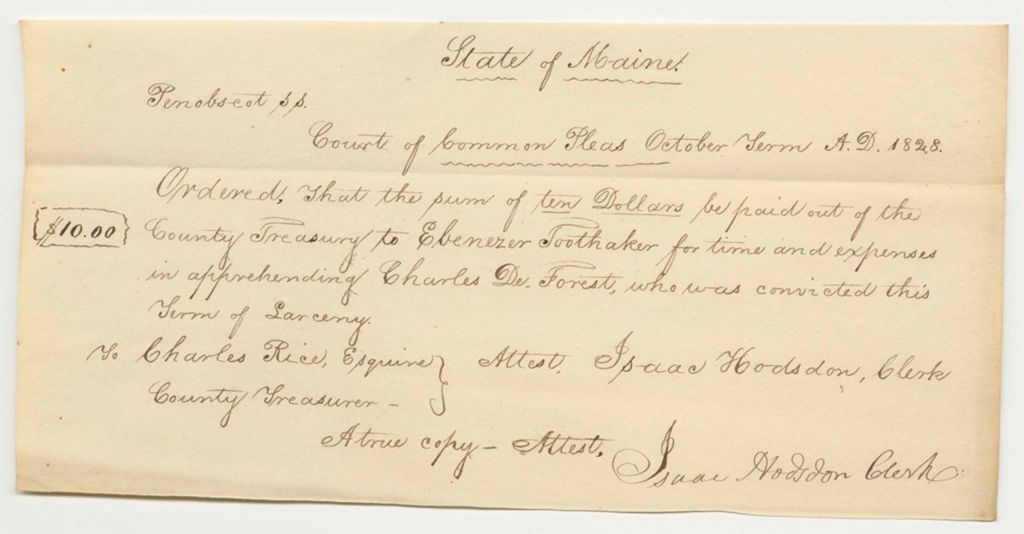 State of Maine.
Penobscot ss.
Court of Common Pleas October Term A.D. 1828.
Ordered, That the sum of ten Dollars be paid out of the
$10.00 County Treasury to Ebenezer Toothaker for time and expenses
in apprehending Charles De. Forest, who was convicted this
Term of Larceny.
To Charles Rice, Esquire } Attest, Isaac Hodsdon, Clerk
County Treasurer –
A true copy – Attest,
Isaac Hodsdon Clerk